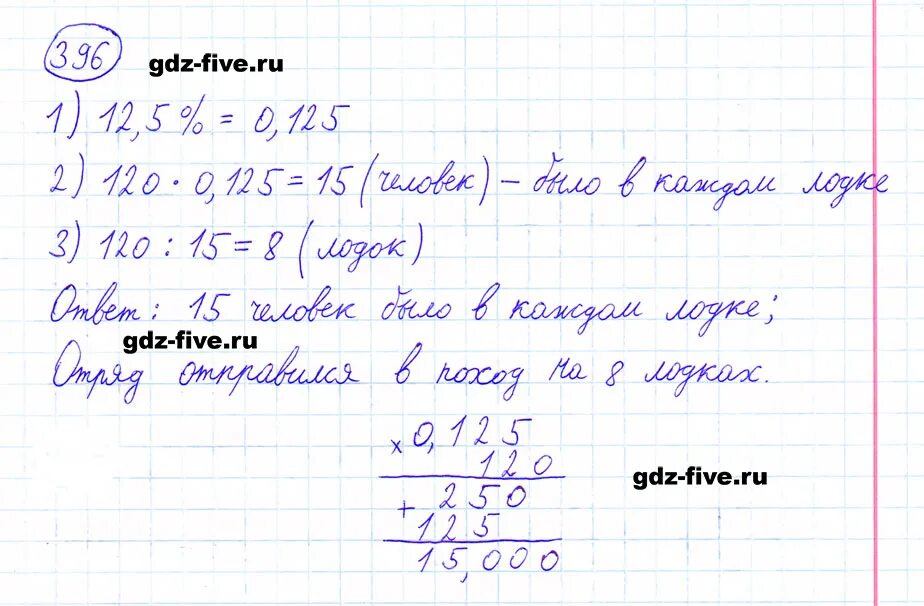 396
gdz-five.ru
1) 12,5% = 0,125
2) 120 · 0,125 = 15 (человек) – было в каждом лодке
3) 120 : 15 = 8 (лодок)
Ответ: 15 человек было в каждом лодке;
gdz-five.ru
Отряд отправился в поход на 8 лодках.
× 0,125
120
gdz-five.ru
+ 250
125
15,000